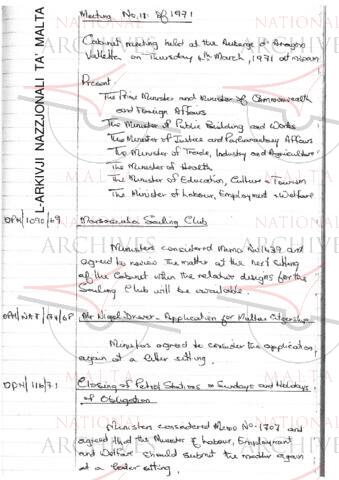 L-ARKIVJI NAZZJONALI TA' MALTA
Meeting No. 18 of 1971
Cabinet meeting held at the Auberge d'Aragon
Valletta on Thursday 4th March, 1971 at
Present.
The Prime Minister and Minister of Commonwealth
and Foreign Affairs
The Minister of Public Building and Works
The Minister of Justice and Parliamentary Affairs
The Minister of Trade, Industry and Agriculture
The Minister of Health
The Minister of Education, Culture & Tourism
The Minister of Labour, Employment & Welfare
OPM/1090/69 Marsascala Sailing Club
Ministers considered Memo No 1439 and
agreed to review the matter at the next sitting
of the Cabinet when the relative designs for the
Sailing Club will be available.
Mr Nigel - Application for Maltese Citizenship
Ministers agreed to consider the application
again at a later sitting.
OPM/116/71 Closing of Petrol Stations on Sundays and Holidays
of Obligation
Ministers considered Memo No. 1707 and
agreed that the Minister of Labour, Employment
and Welfare should submit the matter again
at a later sitting.
NATIONAL
ARCHIVES
MALTA